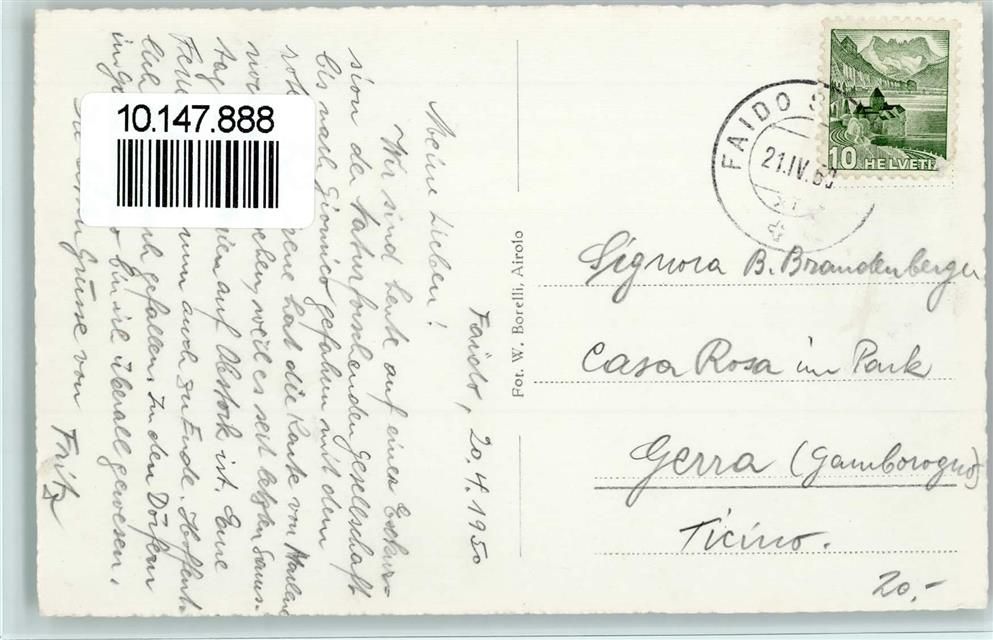 10.147.888
Faido, 20.4.1950
Meine Lieben!
Wir sind heute auf einer Exkur-
sion der naturforschenden Gesellschaft
bis nach Giornico gefahren mit dem
rote
Irene hat die Karte von
no
sehen, weil es seit letzten Sams-
tag
auf Abstock ist. Eure
Feri
nun auch zu Ende. Hoffent-
lich
gefallen. In den Dörfern
in Ge
bin ich überall gewesen.
Grüsse von
Fritz
Fot. W. Borelli, Airolo
FAIDO
21.IV.50
10 HELVETIA
Signora B. Brandenberger
Casa Rosa im Park
Gerra (Gambarogno)
Ticino.
20,-